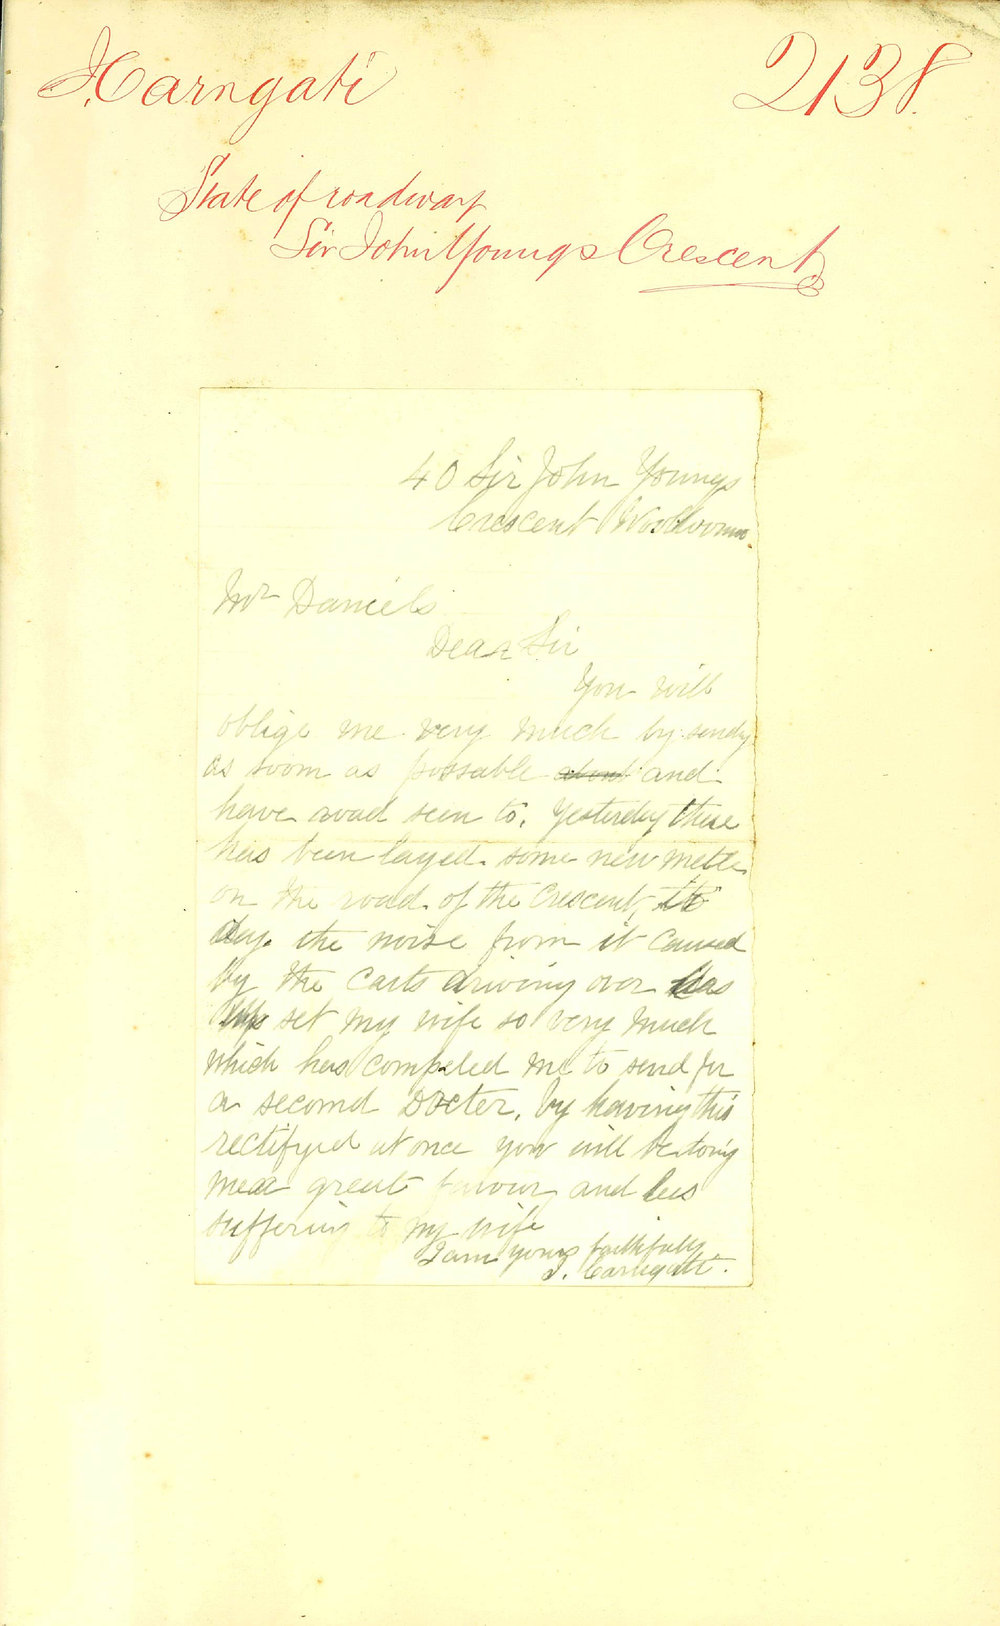 J. Carngati
2138.
State of roadway
Sir John Youngs Crescent
40 Sir John Youngs
Crescent
Mr Daniels
Dear Sir
You will
oblige me very much by sendg
as soon as possable and
have road seen to. Yesterday there
has been layed some new mettle
on the road of the Crescent, to
day the noise from it caused
by the carts driving over has
up set my wife so very much
which has compeled me to send for
a second Docter. by having this
rectifyed at once you will be doing
me a great favour and les
suffering to my wife
I am yours faithfully